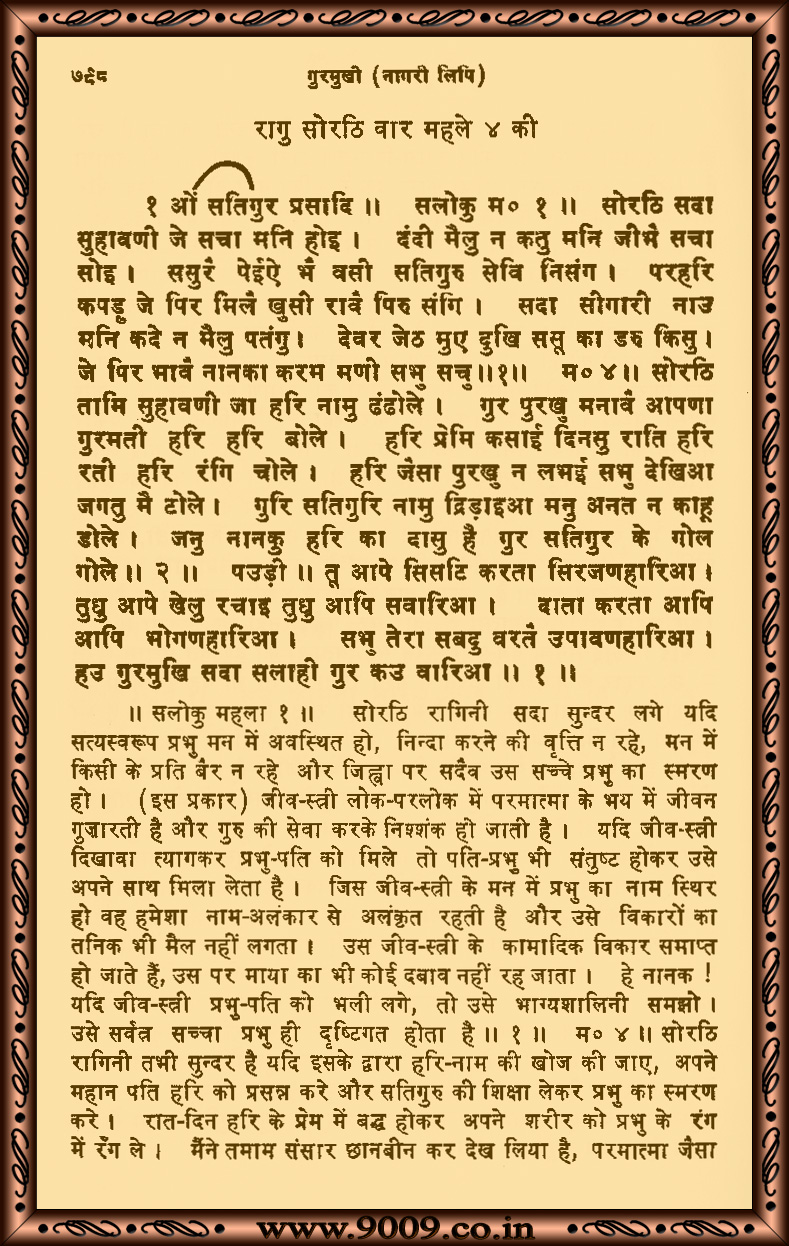 ७९८ गुरमुखी (नागरी लिपि)
रागु सोरठि वार महले ४ की
१ ओं सतिगुर प्रसादि ॥ सलोकु म० १ ॥ सोरठि सदा
सुहावणी जे सचा मनि होइ । दंदी मैलु न कतु मनि जीभै सचा
सोइ । ससुरै पेईऐ भै वसी सतिगुरु सेवि निसंग । परहरि
कपड़ु जे पिर मिलै खुसी रावै पिरु संगि । सदा सीगारी नाउ
मनि कदे न मैलु पतंगु । देवर जेठ मुए दुखि ससू का डरु किसु ।
जे पिर भावै नानका करम मणी सभु सचु ॥१॥ म० ४ ॥ सोरठि
तामि सुहावणी जा हरि नामु ढंढोले । गुर पुरखु मनावै आपणा
गुरमती हरि हरि बोले । हरि प्रेमि कसाई दिनसु राति हरि
रती हरि रंगि चोले । हरि जैसा पुरखु न लभई सभु देखिआ
जगतु मै टोले । गुरि सतिगुरि नामु द्रिड़ाइआ मनु अनत न काहू
डोले । जनु नानकु हरि का दासु है गुर सतिगुर के गोल
गोले ॥ २ ॥ पउड़ी ॥ तू आपे सिसटि करता सिरजणहारिआ ।
तुधु आपे खेलु रचाइ तुधु आपि सवारिआ । दाता करता आपि
आपि भोगणहारिआ । सभु तेरा सबदु वरतै उपावणहारिआ ।
हउ गुरमुखि सदा सलाही गुर कउ वारिआ ॥ १ ॥
॥ सलोकु महला १ ॥ सोरठि रागिनी सदा सुन्दर लगे यदि
सत्यस्वरूप प्रभु मन में अवस्थित हो, निन्दा करने की वृत्ति न रहे, मन में
किसी के प्रति बैर न रहे और जिह्वा पर सदैव उस सच्चे प्रभु का स्मरण
हो । (इस प्रकार) जीव-स्त्री लोक-परलोक में परमात्मा के भय में जीवन
गुजारती है और गुरु की सेवा करके निश्शंक हो जाती है । यदि जीव-स्त्री
दिखावा त्यागकर प्रभु-पति को मिले तो पति-प्रभु भी संतुष्ट होकर उसे
अपने साथ मिला लेता है । जिस जीव-स्त्री के मन में प्रभु का नाम स्थिर
हो वह हमेशा नाम-अलंकार से अलंकृत रहती है और उसे विकारों का
तनिक भी मैल नहीं लगता । उस जीव-स्त्री के कामादिक विकार समाप्त
हो जाते हैं, उस पर माया का भी कोई दबाव नहीं रह जाता । हे नानक !
यदि जीव-स्त्री प्रभु-पति को भली लगे, तो उसे भाग्यशालिनी समझो ।
उसे सर्वत्र सच्चा प्रभु ही दृष्टिगत होता है ॥ १ ॥ म० ४ ॥ सोरठि
रागिनी तभी सुन्दर है यदि इसके द्वारा हरि-नाम की खोज की जाए, अपने
महान पति हरि को प्रसन्न करे और सतिगुरु की शिक्षा लेकर प्रभु का स्मरण
करे । रात-दिन हरि के प्रेम में बद्ध होकर अपने शरीर को प्रभु के रंग
में रँग ले । मैंने तमाम संसार छानबीन कर देख लिया है, परमात्मा जैसा
www.9009.co.in